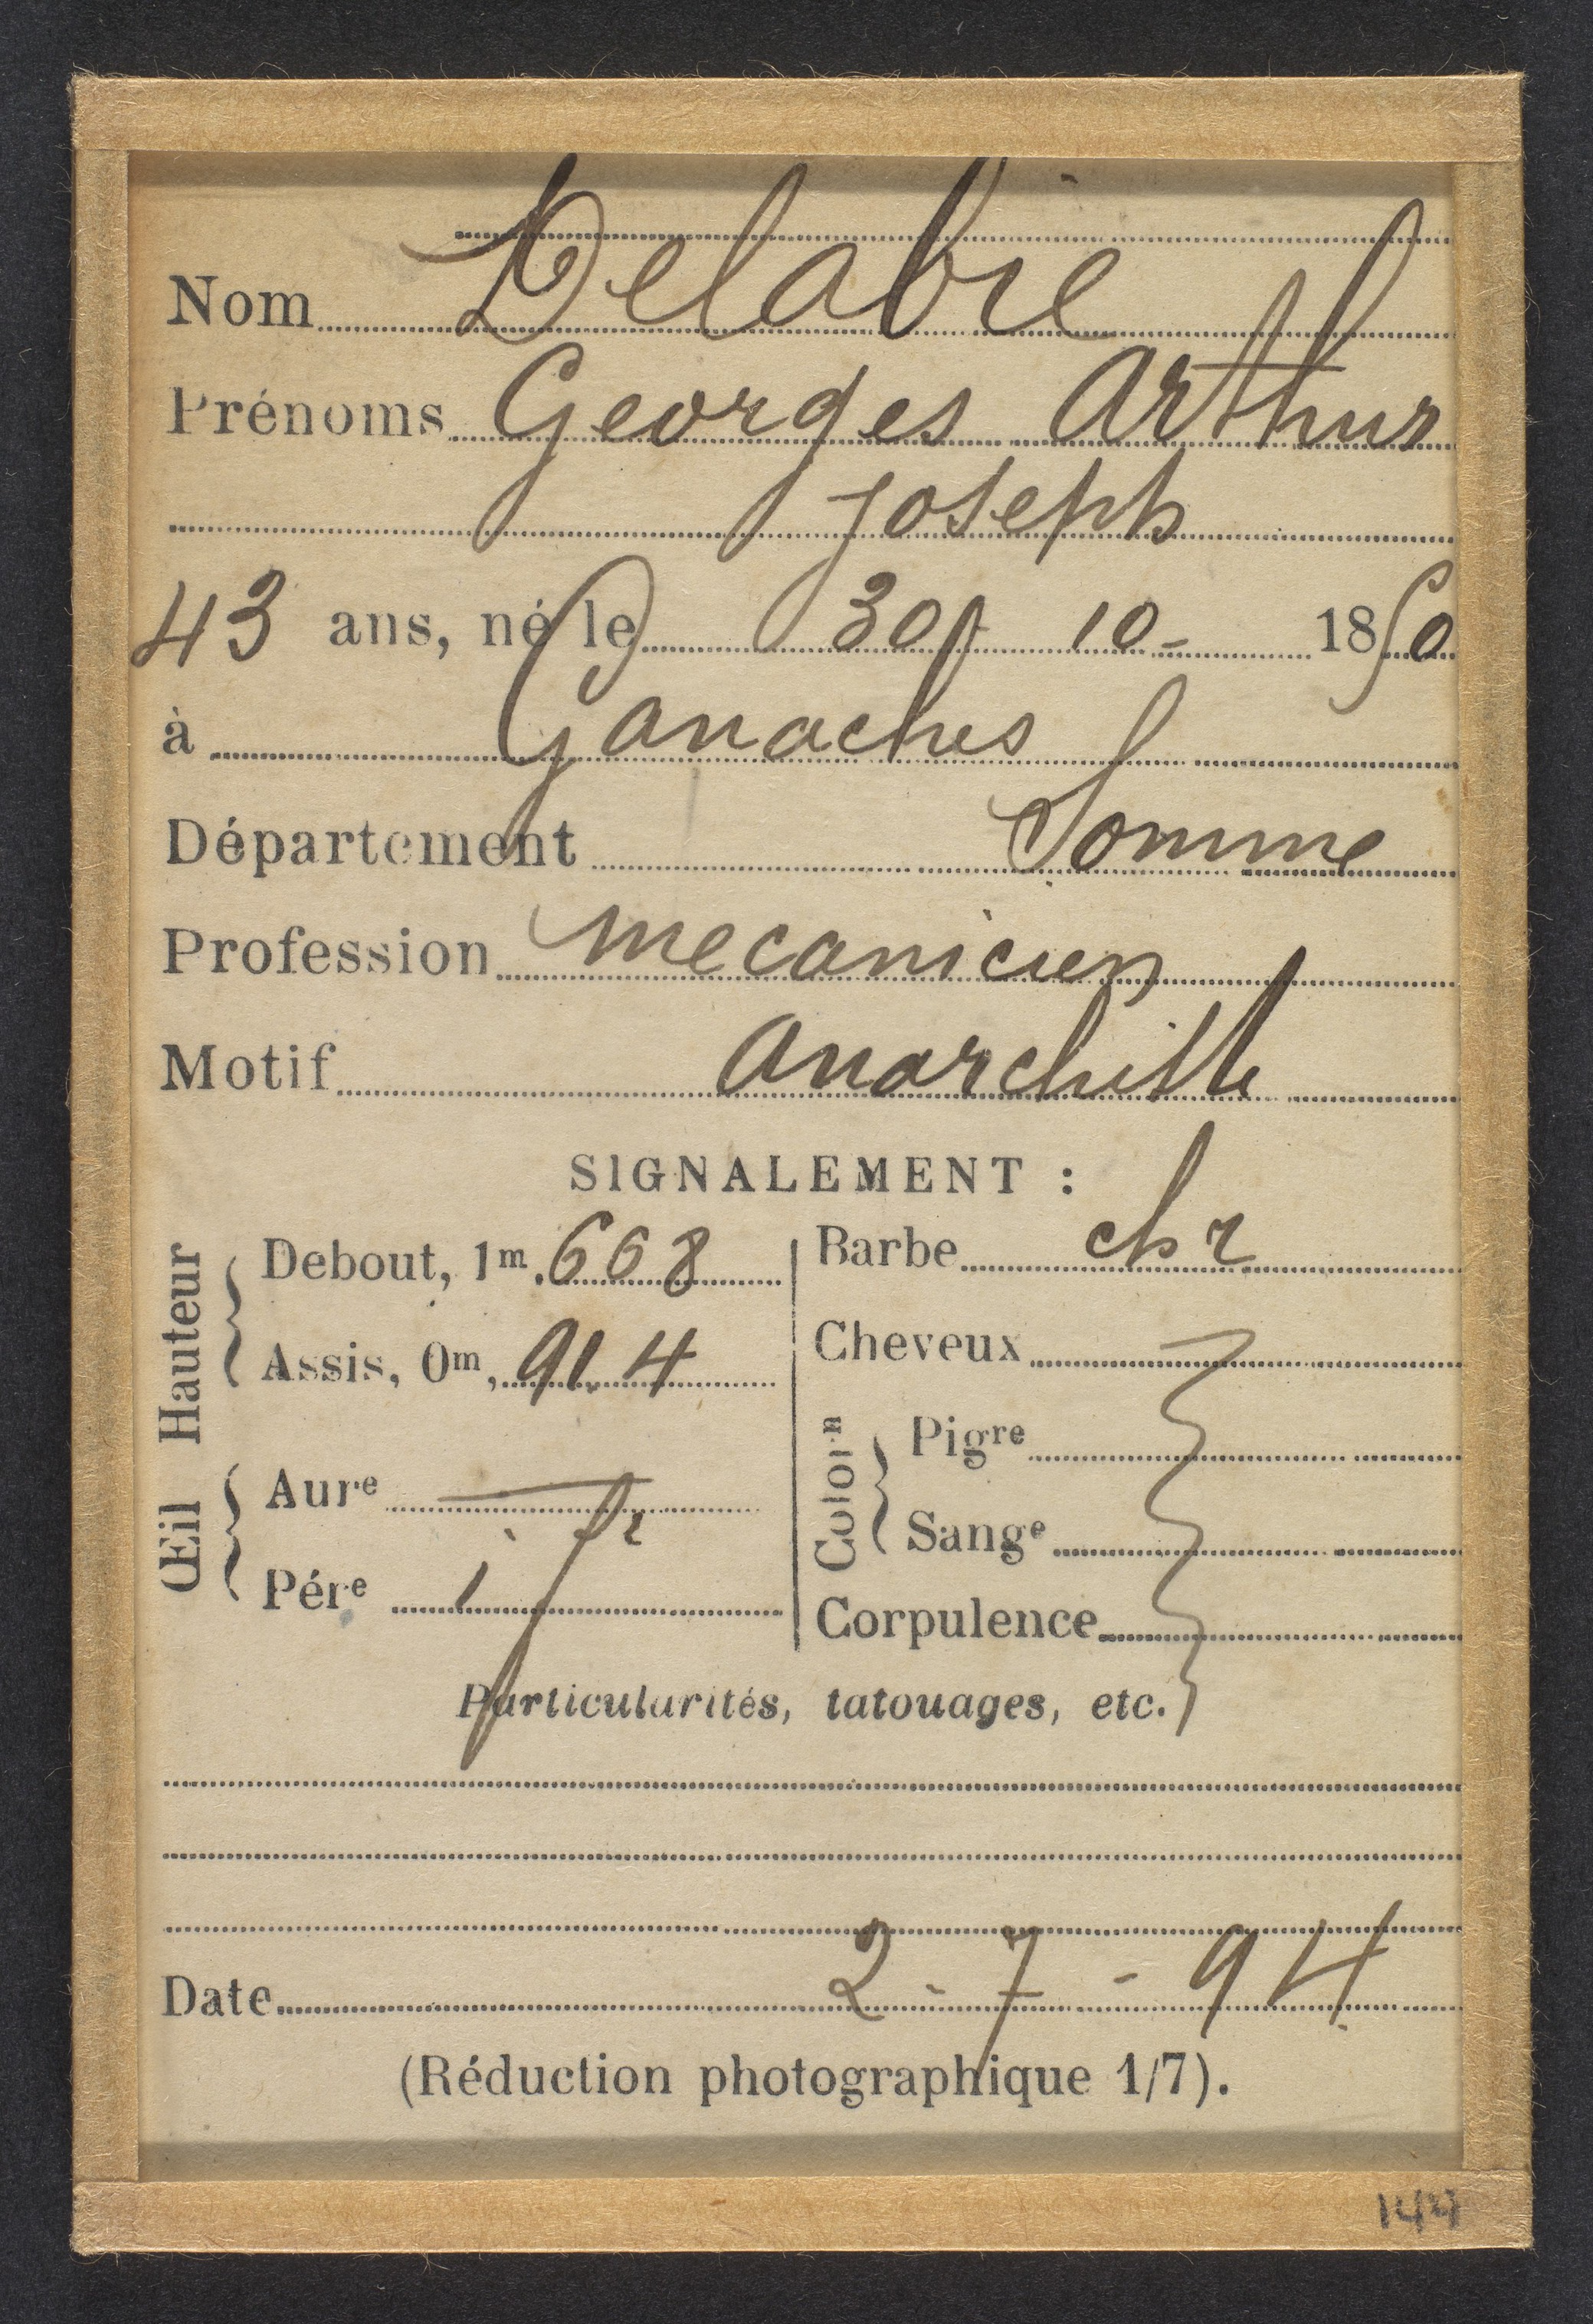 Nom Delabie
Prénoms Georges Arthur
Joseph
43 ans, né le 30 10 - 1850
à Ganaches
Département Somme
Profession mecanicien
Motif anarchiste
SIGNALEMENT :
Hauteur
Debout, 1m.668
Assis, 0m, 91.4
Œil
Aure
Pére
Barbe ch r
Cheveux
Colorn
Pigre
Sange
Corpulence
Particularités, tatouages, etc.
Date 2 - 7 - 94
(Réduction photographique 1/7).
144